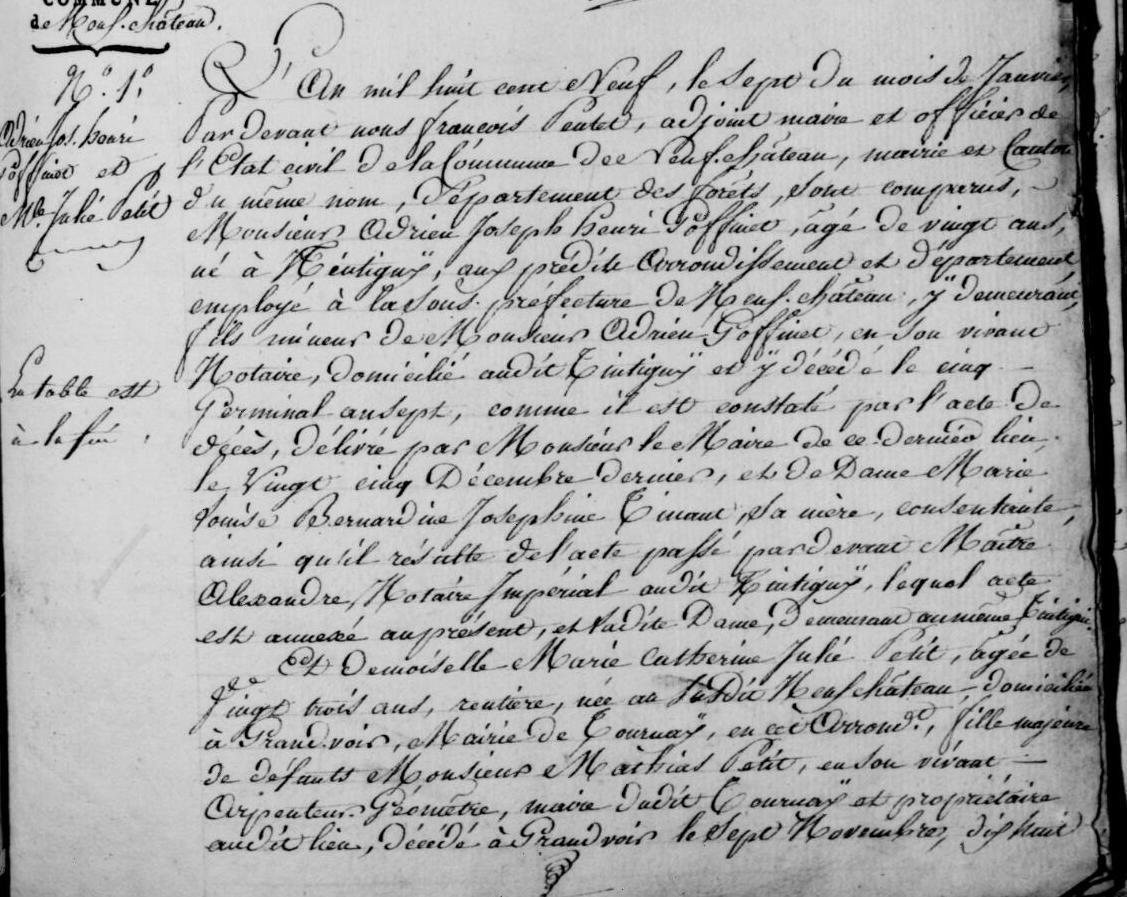 COMMUNE
de Neuf-château.
N.º 1.º
Adrien Jos. henri
Goffinet et
M.le Julie Petit
La table est
à la fin.
L'An mil huit cent Neuf, le Sept du mois de Janvier,
Par devant nous françois Pentet, adjoint maire et officier de
l'Etat civil de la Commune de Neuf-château, mairie et Canton
du même nom, département des forêts, sont comparus,
Monsieur Adrien Joseph henri Goffinet, âgé de vingt ans,
né à Tintignÿ, aux prédits Arrondissement et département
employé à la Sous-préfecture de Neuf-château, ÿ demeurant,
fils mineur de Monsieur Adrien Goffinet, en son vivant
Notaire, domicilié audit Tintignÿ et ÿ décédé le cinq
Germinal an sept, comme il est constaté par l'acte de
décès, délivré par Monsieur le Maire de ce dernier lien
le Vingt cinq Décembre dernier, et de Dame Marie
Louise Bernardine Josephine Tinant, sa mère, consentante,
ainsi qu'il résulte de l'acte passé par devant Maître
Alexandre, Notaire Impérial audit Tintignÿ, lequel acte
est annexé au présent, et ladite Dame, demeurant au même Tintignÿ.
Et Demoiselle Marie Catherine Julie Petit, âgée de
Vingt trois ans, rentière, née au susdit Neufchâteau, domiciliée
à Grandvoir, Mairie de Tournaÿ, en cet Arrond.t, fille majeure
de défunts Monsieur Mathias Petit, en son vivant
Arpenteur-Géomètre, maire dudit Tournaÿ et propriétaire
audit lieu, décédé à Grandvoir le Sept Novembre, dix huit